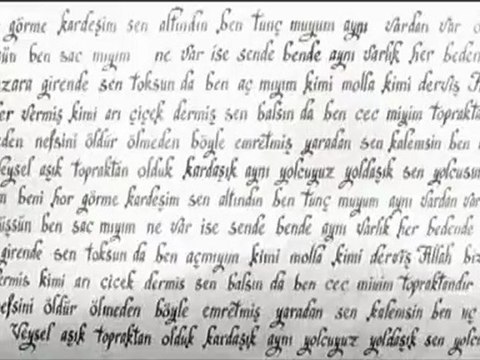 görme kardeşim sen altındın ben tunç muyum aynı vardan var o
sün ben sac mıyım ne var ise sende bende aynı varlık her beden
zara girende sen toksun da ben aç mıyım kimi molla kimi derviş A
er vermiş kimi arı çiçek dermiş sen balsın da ben cec miyim toprak
eden nefsini öldür ölmeden böyle emretmiş yaradan sen kalemsin ben
eysel aşık topraktan olduk kardaşık aynı yolcuyuz yoldaşık sen yolcus
n beni hor görme kardeşim sen altındın ben tunç muyum aynı vardan var
üşsün ben sac mıyım ne var ise sende bende aynı varlık her bedende
girende sen toksun da ben açmıyım kimi molla kimi derviş Allah bi
ermiş kimi arı çicek dermiş sen balsın da ben cec miyim topraktandır
nefsini öldür ölmeden böyle emretmiş yaradan sen kalemsin ben uç
Veysel aşık topraktan olduk kardaşık aynı yolcuyuz yoldaşık sen yolcu